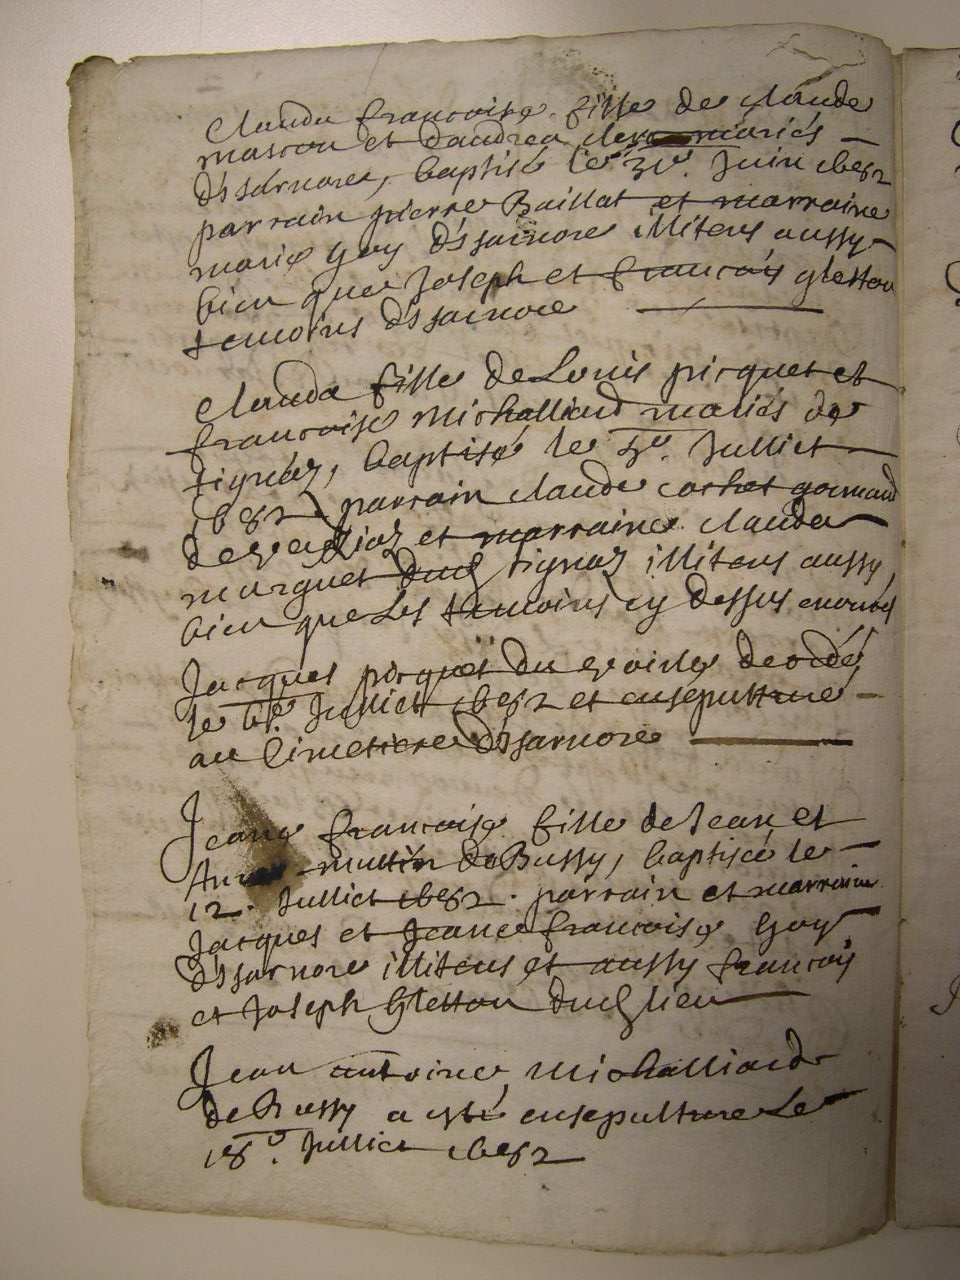 Clauda francoise fille de claude
masson et dandrea mariés
dessarnore, baptisé le Juin 1682
parrain pierre Baillat et marraine
marie goy dessarnore illiterés aussy
bien que Joseph et francois gletton
temoins dessarnore
Clauda fille de Louis picquet et
francoise Michalliard mariés de
tignaz, baptisé le Julliet
1682 parrain claude cochet
et marraine clauda
marguet dud tignaz illiterés aussy
bien que Les temoins cy dessus
Jacques picquet du decédé
le Julliet 1682 et ensepulturé
au Cimetiere dessarnore
Jeane francoise fille de Jean et
mutin de Bussy, baptisée le
12. Julliet 1682. parrain et marraine
Jacques et Jeane francoise Goy
dessarnore illiterés et aussy francois
et Joseph Gletton dud lieu
Jean antoine Michalliard
de Bussy a esté ensepulture Le
18e Julliet 1682